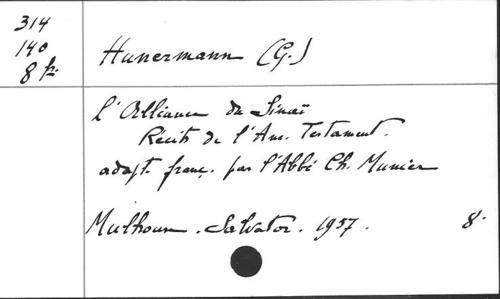 314
140
8 k:
Hunermann (G.)
L'Alliance du Sinaï
Récits de l'Anc. Testament.
adapt. franç. par l'Abbé Ch. Munier
Mulhouse. Salvator. 1957. 8°